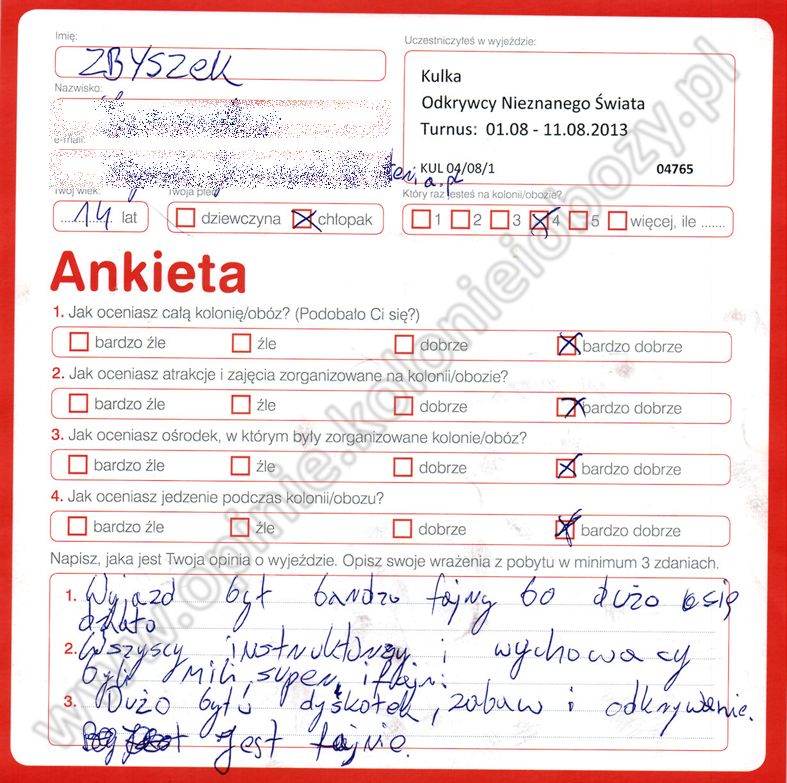 Imię:
ZBYSZEK
Uczestniczyłeś w wyjeździe:
Kulka
Odkrywcy Nieznanego Świata
Turnus: 01.08 - 11.08.2013
KUL 04/08/1 04765
Nazwisko:
e-mail:
teria.pl
Twój wiek:
14 lat
Twoja płeć
dziewczyna chłopak
Który raz jesteś na kolonii/obozie?
1 2 3 4 5 więcej, ile .......
Ankieta
1. Jak oceniasz całą kolonię/obóz? (Podobało Ci się?)
bardzo źle źle dobrze bardzo dobrze
2. Jak oceniasz atrakcje i zajęcia zorganizowane na kolonii/obozie?
bardzo źle źle dobrze bardzo dobrze
3. Jak oceniasz ośrodek, w którym były zorganizowane kolonie/obóz?
bardzo źle źle dobrze bardzo dobrze
4. Jak oceniasz jedzenie podczas kolonii/obozu?
bardzo źle źle dobrze bardzo dobrze
Napisz, jaka jest Twoja opinia o wyjeździe. Opisz swoje wrażenia z pobytu w minimum 3 zdaniach.
1. Wyjazd był bardzo fajny bo dużo się
działo
2. Wszyscy instruktorzy i wychowacy
byli mili, super i fajni.
3. Dużo było dyskotek, zabaw i odkrywanie.
jest fajnie.
www.opinie.kolonieiobozy.pl